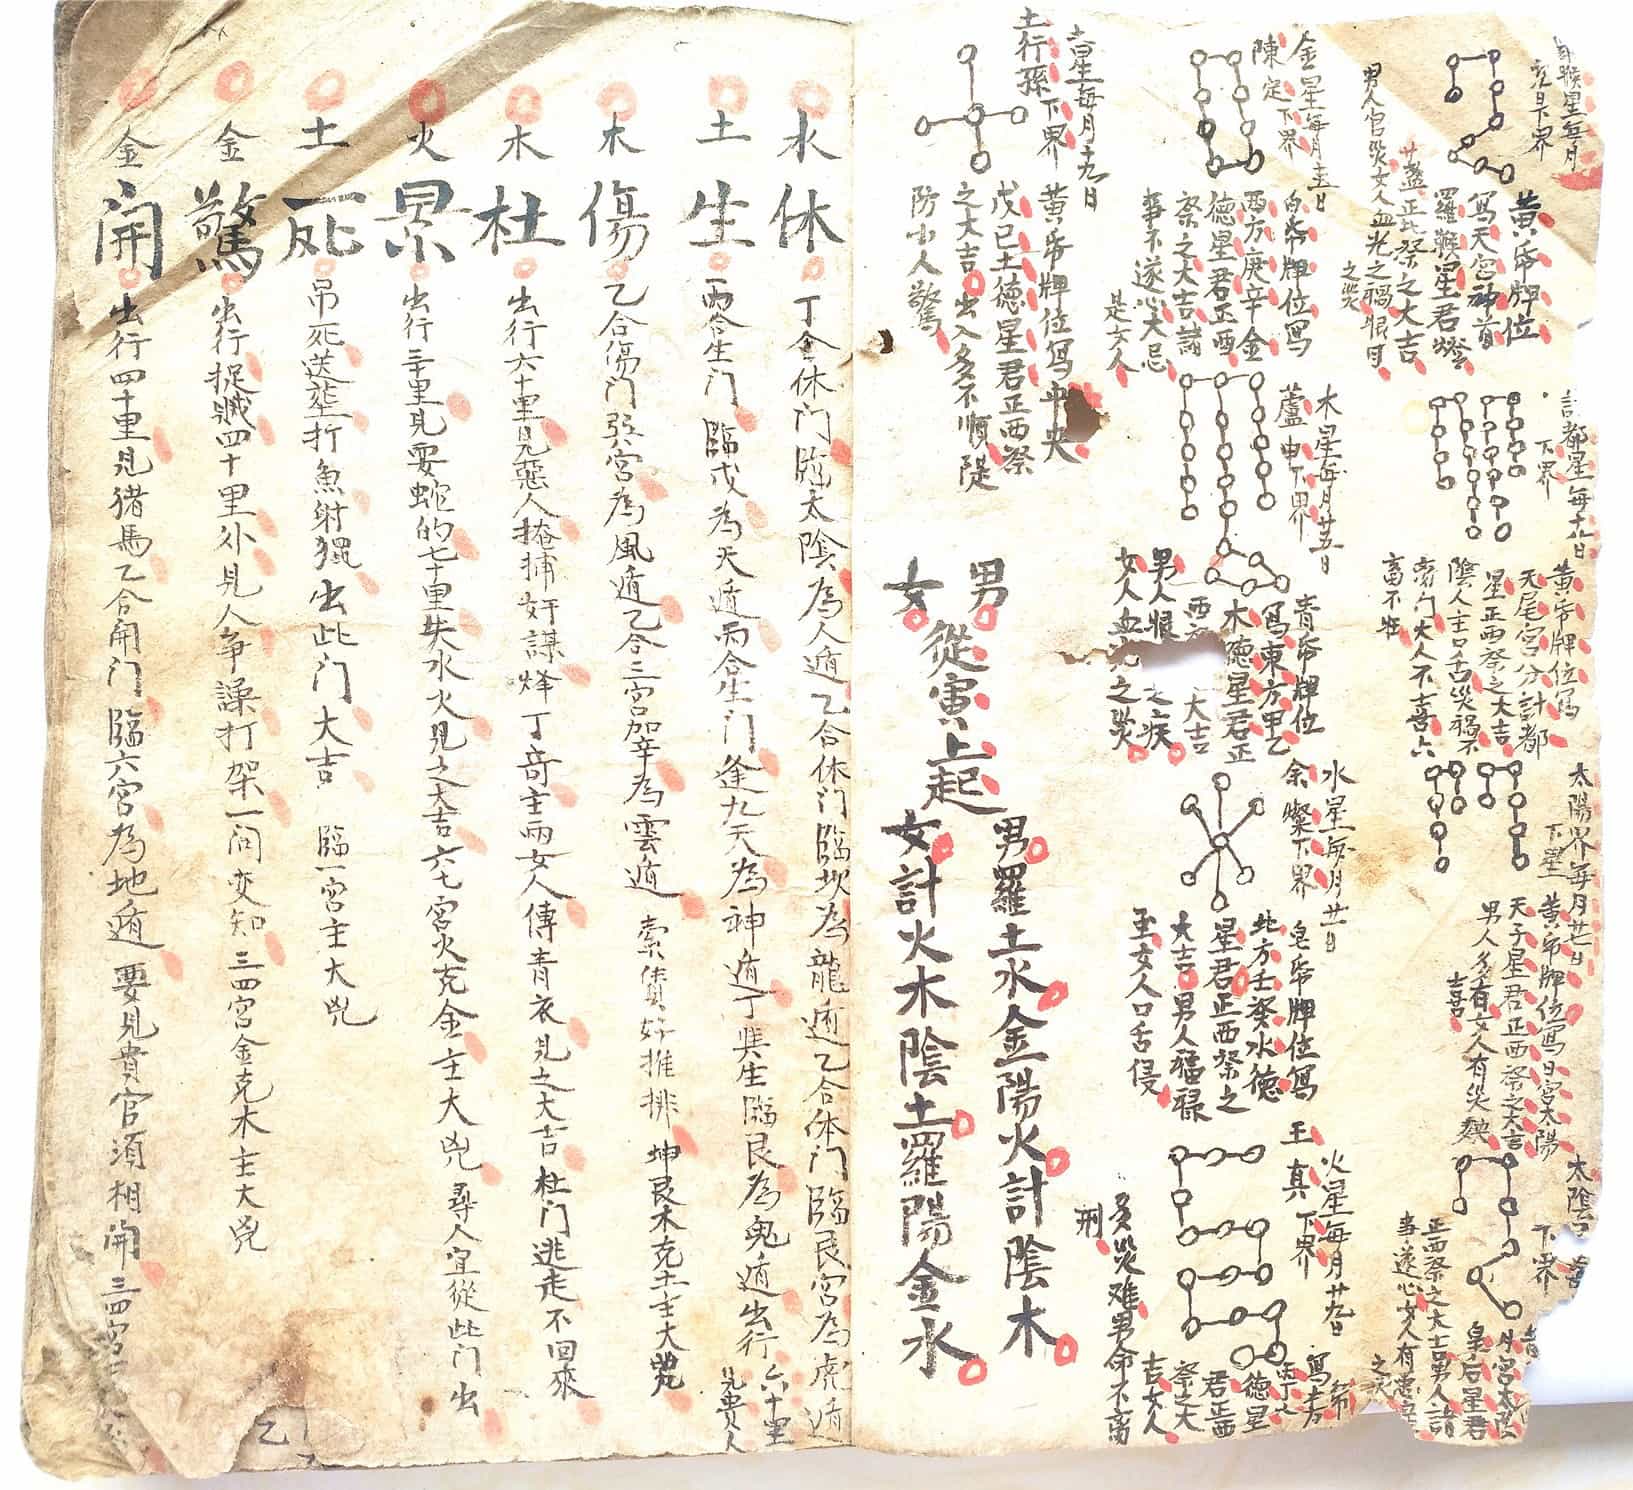 黄帝牌位
寫天宮神首
羅睺星君燈
廿盞正北祭之大吉
男人官災女人血光之禍恨月
之災
金星每月十五日
陳定下界
白帝牌位寫
西方庚辛金
德星君正西
祭之大吉諸
事不遂心大忌
是女人
土星每月十九日
土行孫下界
黄帝牌位寫中央
戊己土德星君正西祭
之大吉出入多不順隄
防小人驚
計都星每十八日
下界
黄帝牌位寫
天尾宮分計都
星正西祭之大吉
陰人主口舌災禍不
宅門大人不喜六
畜不旺
木星每月廿五日
下界
青帝牌位
寫東方甲乙
木德星君正
大吉
男人恨 之疾
女人血光之災
太陽界每月廿七日
下星
黄帝牌位寫日宮太陽
天子星君正西祭之大吉
男人多有女人有災殃
水星每月廿一日
余燦下界
皂帝牌位寫
北方壬癸水德
星君正西祭之
大吉男人福祿
至女人口舌侵
太陰
下界
月宮太陰
皇后星君
正西祭之大吉男人諸
事遂心女人有
之災
火星每月廿九日
王真下界
寫南方
丙丁火德星
君正西
祭之大
吉女人
多災难男命不
刑
男 女
從寅上起
男羅土水金陽火計陰木
女計火木陰土羅陽金水
水休 丁合休门臨太陰為人遁乙合休门臨坎為龍遁乙合休门臨艮宮為虎遁
土生 丙合生门臨戊為天遁丙合生门逢九天為神遁丁奘生臨艮為鬼遁出行六十里
見貴人
木傷 乙合傷门巽宮為風遁乙合三宮加辛為雲遁 索債好推排 坤艮木克土主大兇
木杜 出行六十里見惡人掩捕奸謀烽丁奇主兩女人傳青衣見之大吉杜门逃走不回來
火景 出行三十里見要蛇的七十里失水火見之大吉六七宮火克金主大兇 尋人宜從此门出
土死 吊死送塟打魚射獵出此门大吉 臨一宮主大兇
金驚 出行捉賊四十里外見人争譟打架一问变知三四宮金克木主大兇
金開 出行四十里見猪馬乙合開门臨六宮為地遁 要見貴官須相開三四宮
乙